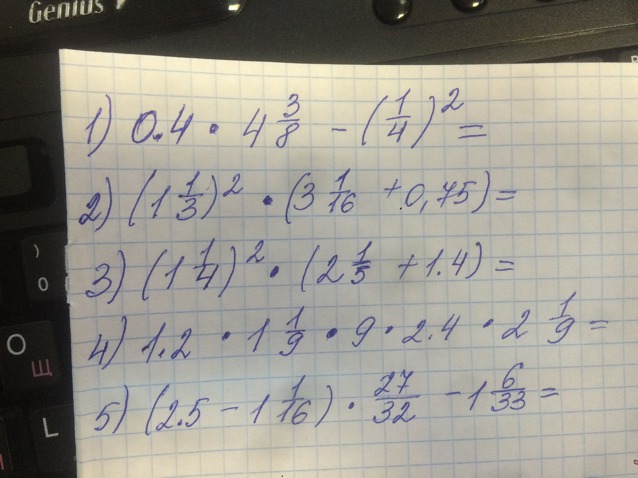 Genius
1) 0.4 · 4 3/8 - (1/4)² =
2) (1 1/3)² · (3 1/16 + 0,75) =
3) (1 1/4)² · (2 1/5 + 1.4) =
4) 1.2 · 1 1/9 · 9 · 2.4 · 2 1/9 =
5) (2.5 - 1 1/16) · 27/32 - 1 6/33 =
)
0
O
Щ
L